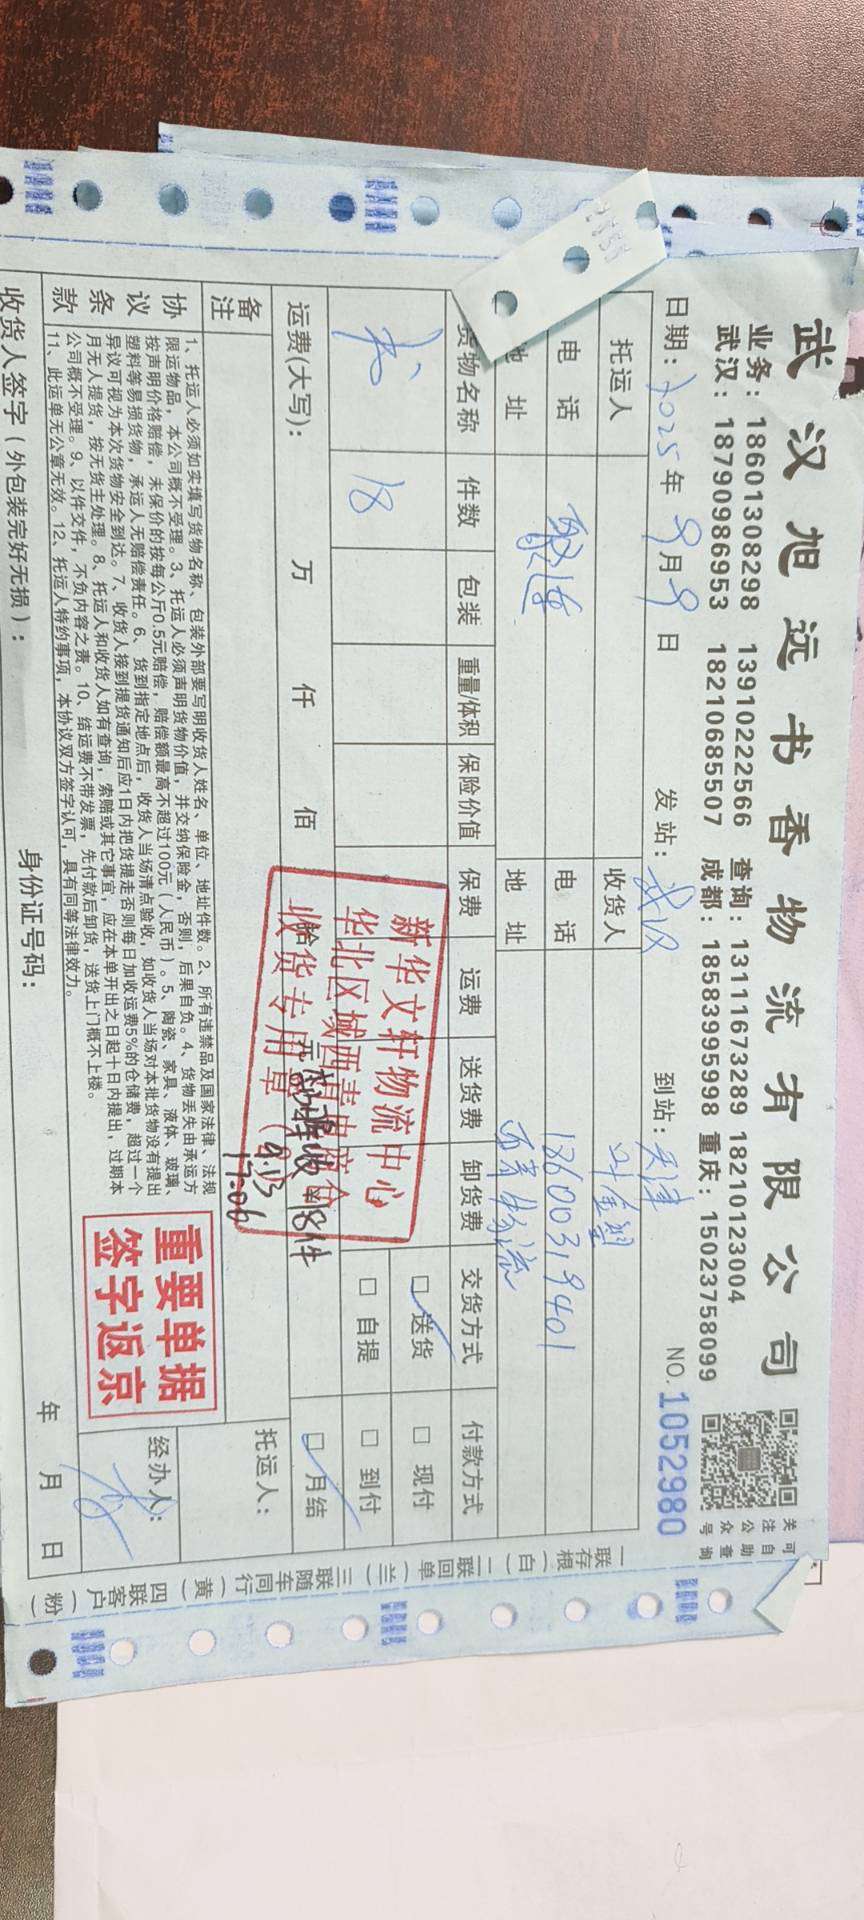 武汉旭远书香物流有限公司
业务：18601308298 13910222566 查询：13111673289 18210123004
武汉：18790986953 18210685507 成都：18583995998 重庆：15023758099
关注公众号
可自助查询
日期：2025年9月9日 发站：武汉 到站：天津 NO.1052980
托运人 收货人 叶金塑
电话 电话 13600319401
地址 地址 西青物流
货物名称 件数 包装 重量/体积 保险价值 保费 运费 送货费 卸货费 交货方式 付款方式
书 18 □送货 □现付
□自提 □到付
运费(大写)： 万 仟 佰 拾 元 □月结
新华文轩物流中心
华北区域西青中转仓
收货专用章
18件
9.13
17:06
备注
托运人：
协议条款
1、托运人必须如实填写货物名称、包装外部要写明收货人姓名、单位、地址件数。2、所有违禁品及国家法律、法规
限运物品，本公司概不受理。3、托运人必须声明货物价值，并交纳保险金，否则，后果自负。4、货物丢失由承运方
按声明价格赔偿，未保价的按每公斤0.5元赔偿，赔偿额最高不超过100元（人民币）。5、陶瓷、家具、液体、玻璃、
塑料等易损货物，承运人无赔偿责任。6、货到指定地点后，收货人当场清点验收，如收货人当场对本批货物没有提出
异议可视为本次货物安全到达。7、收货人接到提货通知后应1日内把货提走否则每日加收运费5%的仓储费，超过一个
月无人提货，按无货主处理。8、托运人和收货人如有查询，索赔或其它事宜，应在本单开出之日起十日内提出，过期本
公司概不受理。9、以件交件，不负内容之责。10、结运费不带发票，先付款后卸货，送货上门概不上楼。
11、此运单无公章无效。12、托运人特约事项，本协议双方签字认可，具有同等法律效力。
重要单据
签字返京
经办人：
收货人签字（外包装完好无损）： 身份证号码： 年 月 日
一联存根（白） 二联回单（兰） 三联随车同行（黄） 四联客户（粉）